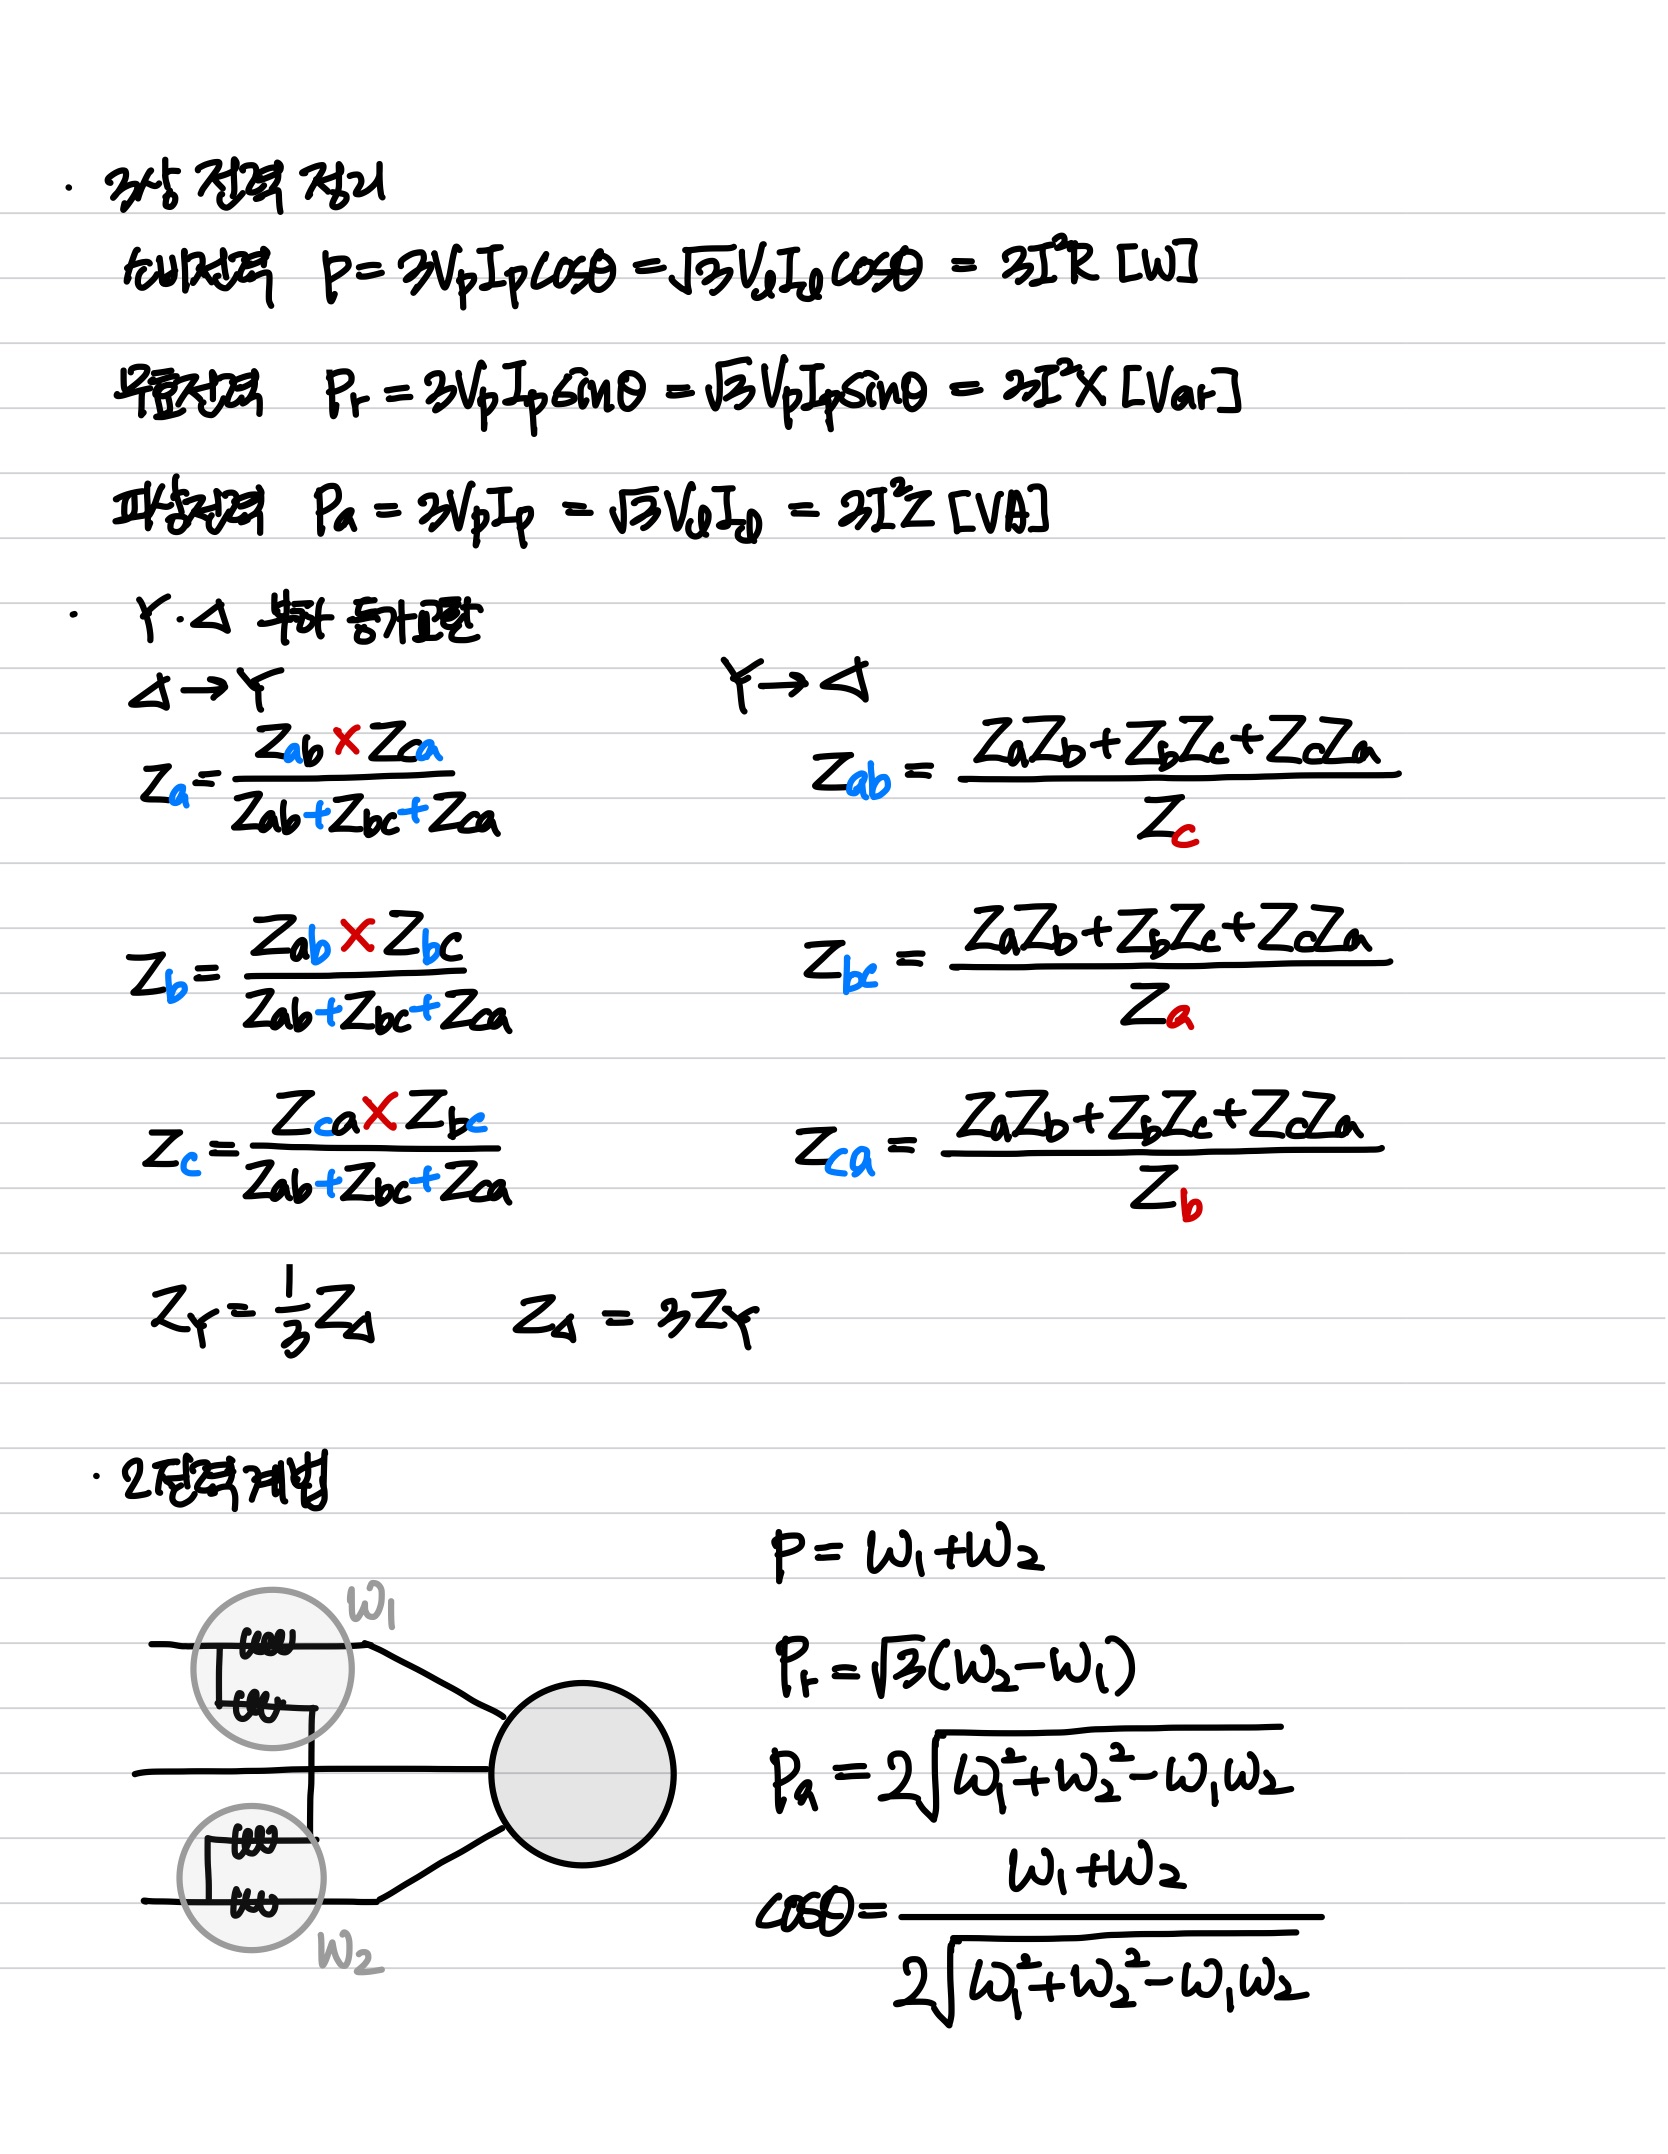 · 3상 전력 정리
소비전력 P = 3VpIpcosθ = √3VℓIℓcosθ = 3I²R [W]
무효전력 Pr = 3VpIpsinθ = √3VpIpsinθ = 3I²X [Var]
피상전력 Pa = 3VpIp = √3VℓIℓ = 3I²Z [VA]
· Y·Δ 부하 등가교환
Δ→Y
Za = Zab × Zca / Zab+Zbc+Zca
Zb = Zab × Zbc / Zab+Zbc+Zca
Zc = Zca × Zbc / Zab+Zbc+Zca
Y→Δ
Zab = ZaZb+ZbZc+ZcZa / Zc
Zbc = ZaZb+ZbZc+ZcZa / Za
Zca = ZaZb+ZbZc+ZcZa / Zb
ZY = 1/3 ZΔ ZΔ = 3ZY
· 2전력계법
W1
W2
P = W1+W2
Pr = √3(W2-W1)
Pa = 2√(W1²+W2²-W1W2)
cosθ = W1+W2 / 2√(W1²+W2²-W1W2)